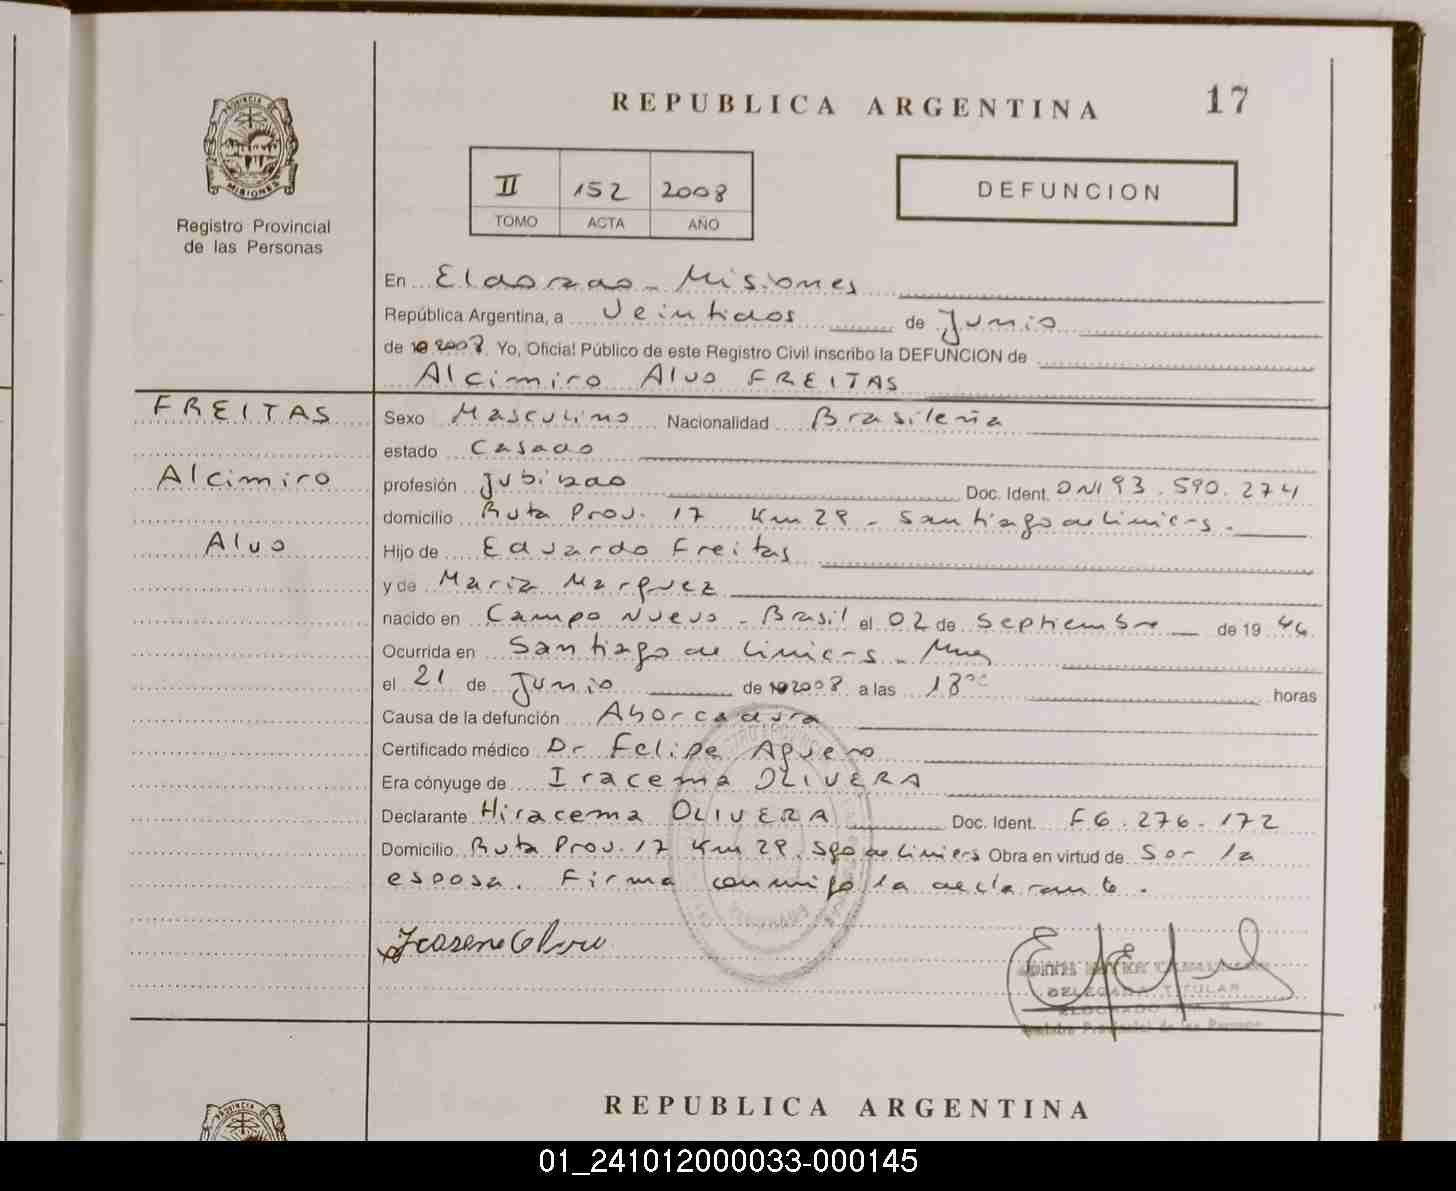 REPUBLICA ARGENTINA
17
II 152 2008
TOMO ACTA AÑO
DEFUNCION
PROVINCIA DE
MISIONES
Registro Provincial
de las Personas
En Eldorado - Misiones
República Argentina, a Veintidos de Junio
de 2008. Yo, Oficial Público de este Registro Civil inscribo la DEFUNCION de
Alcimiro Alvo FREITAS
FREITAS
Alcimiro
Alvo
Sexo Masculino Nacionalidad Brasileña
estado Casado
profesión Jubilado Doc. Ident. DNI 93.590.274
domicilio Ruta Prov. 17 Km 29 - Santiago de Liniers.
Hijo de Eduardo Freitas
y de Maria Marquez
nacido en Campo Nuevo - Brasil el 02 de Septiembre de 19 46
Ocurrida en Santiago de Liniers - Mnes
el 21 de Junio de 2008 a las 18 horas
Causa de la defunción Ahorcadura
Certificado médico Dr Felipe Aguero
Era cónyuge de Iracema OLIVERA
Declarante Hiracema OLIVERA Doc. Ident. F6.276.172
Domicilio Ruta Prov. 17 Km 29. Sgo de Liniers Obra en virtud de Ser la
esposa. Firma conmigo la declarante.
DELEGADA TITULAR
ELDORADO
Registro Provincial de las Personas
REPUBLICA ARGENTINA
PROVINCIA DE
01_241012000033-000145